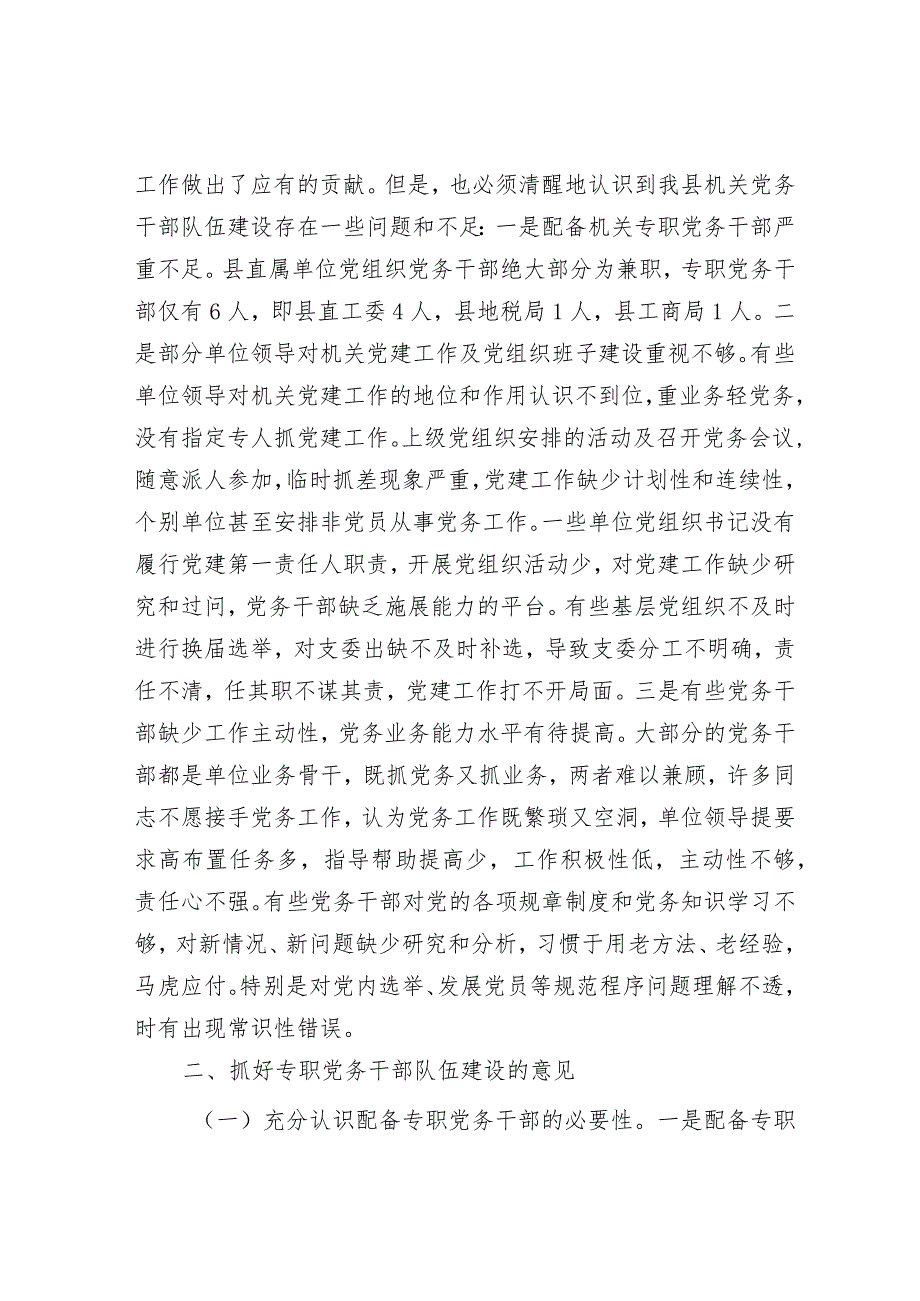 工作做出了应有的贡献。但是，也必须清醒地认识到我县机关党务
干部队伍建设存在一些问题和不足：一是配备机关专职党务干部严
重不足。县直属单位党组织党务干部绝大部分为兼职，专职党务干
部仅有6人，即县直工委4人，县地税局1人，县工商局1人。二
是部分单位领导对机关党建工作及党组织班子建设重视不够。有些
单位领导对机关党建工作的地位和作用认识不到位，重业务轻党务，
没有指定专人抓党建工作。上级党组织安排的活动及召开党务会议，
随意派人参加，临时抓差现象严重，党建工作缺少计划性和连续性，
个别单位甚至安排非党员从事党务工作。一些单位党组织书记没有
履行党建第一责任人职责，开展党组织活动少，对党建工作缺少研
究和过问，党务干部缺乏施展能力的平台。有些基层党组织不及时
进行换届选举，对支委出缺不及时补选，导致支委分工不明确，责
任不清，任其职不谋其责，党建工作打不开局面。三是有些党务干
部缺少工作主动性，党务业务能力水平有待提高。大部分的党务干
部都是单位业务骨干，既抓党务又抓业务，两者难以兼顾，许多同
志不愿接手党务工作，认为党务工作既繁琐又空洞，单位领导提要
求高布置任务多，指导帮助提高少，工作积极性低，主动性不够，
责任心不强。有些党务干部对党的各项规章制度和党务知识学习不
够，对新情况、新问题缺少研究和分析，习惯于用老方法、老经验，
马虎应付。特别是对党内选举、发展党员等规范程序问题理解不透，
时有出现常识性错误。
二、抓好专职党务干部队伍建设的意见
（一）充分认识配备专职党务干部的必要性。一是配备专职